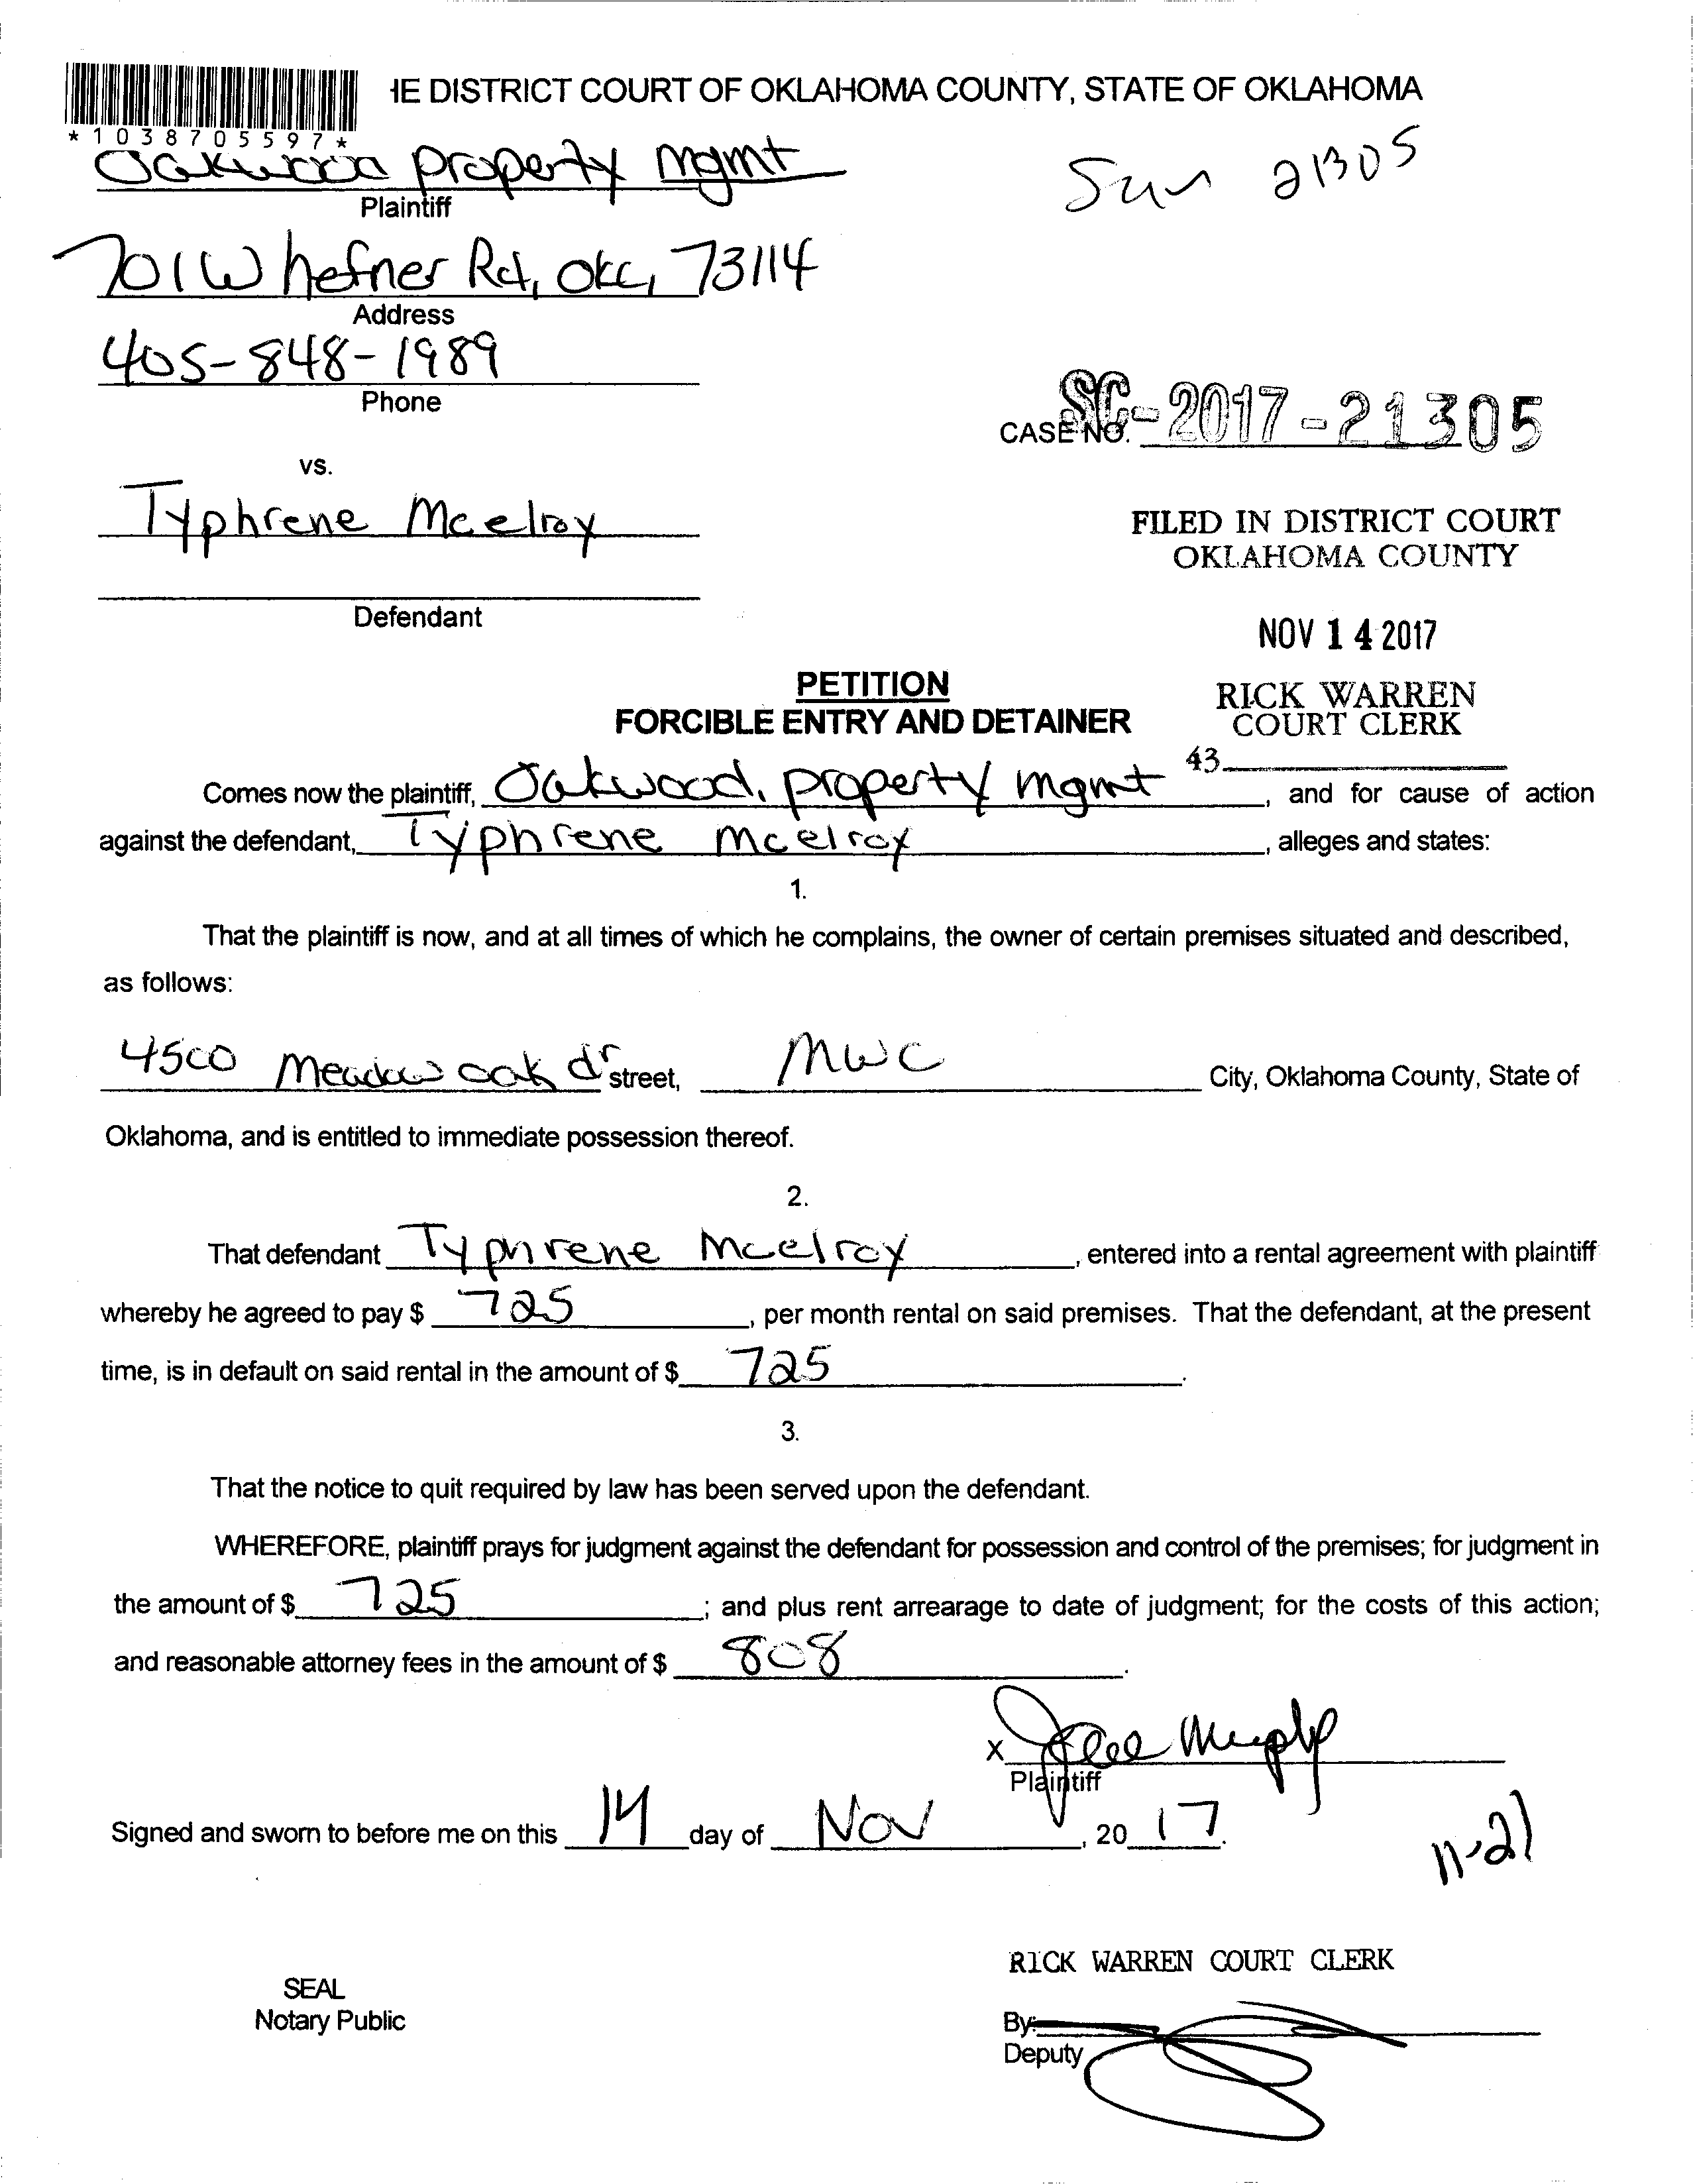 HE DISTRICT COURT OF OKLAHOMA COUNTY, STATE OF OKLAHOMA
*1038705597*
Oakwood property mgmt
Plaintiff
Sum 21305
701 W hefner Rd, OKC, 73114
Address
405-848-1989
Phone
CASE NO. SC-2017-21305
vs.
Typhrene Mcelroy
Defendant
FILED IN DISTRICT COURT
OKLAHOMA COUNTY
NOV 14 2017
RICK WARREN
COURT CLERK
43
PETITION
FORCIBLE ENTRY AND DETAINER
Comes now the plaintiff, Oakwood property mgmt, and for cause of action
against the defendant, Typhrene mcelroy, alleges and states:
1.
That the plaintiff is now, and at all times of which he complains, the owner of certain premises situated and described,
as follows:
4500 Meadow oak dr street, MWC City, Oklahoma County, State of
Oklahoma, and is entitled to immediate possession thereof.
2.
That defendant Typhrene Mcelroy, entered into a rental agreement with plaintiff
whereby he agreed to pay $ 725, per month rental on said premises. That the defendant, at the present
time, is in default on said rental in the amount of $ 725.
3.
That the notice to quit required by law has been served upon the defendant.
WHEREFORE, plaintiff prays for judgment against the defendant for possession and control of the premises; for judgment in
the amount of $ 725; and plus rent arrearage to date of judgment; for the costs of this action;
and reasonable attorney fees in the amount of $ 808.
X
Plaintiff
Signed and sworn to before me on this 14 day of Nov, 20 17.
11-21
RICK WARREN COURT CLERK
SEAL
Notary Public
By:
Deputy